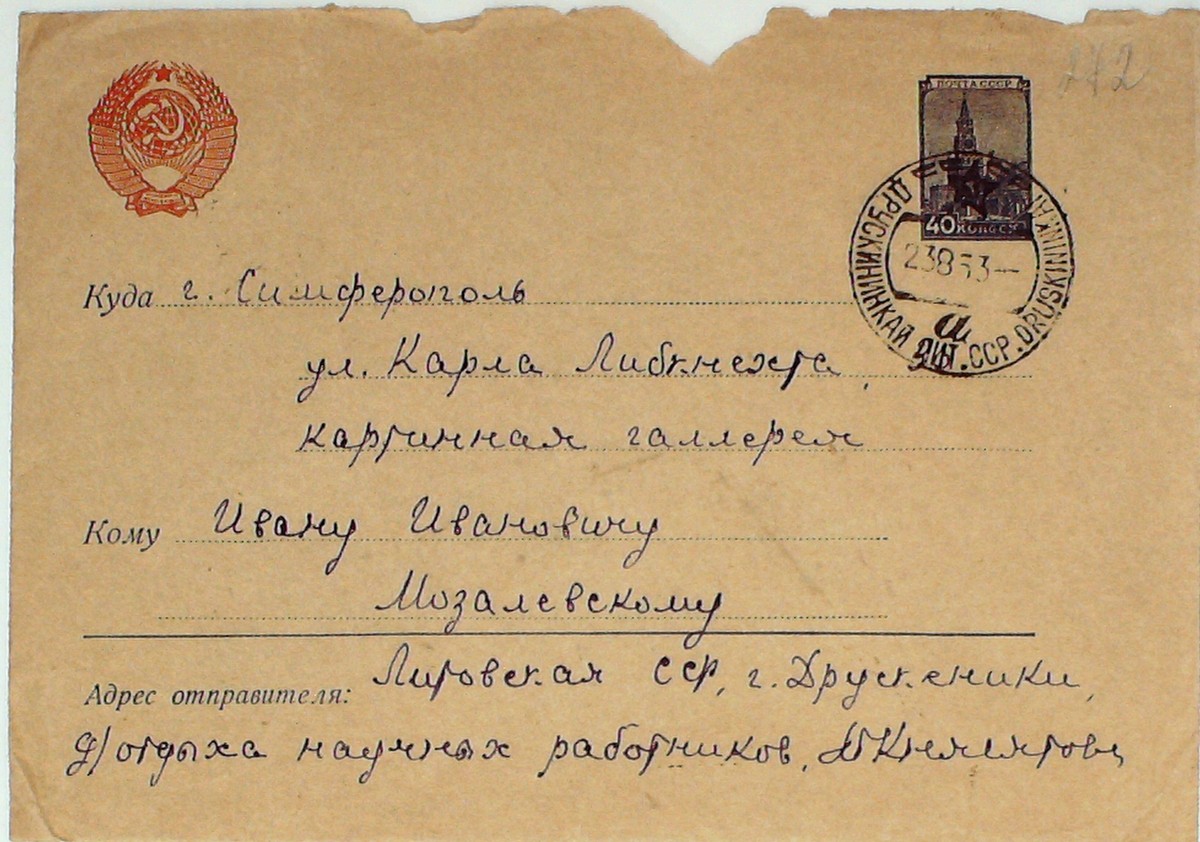 272
ПОЧТА СССР
40 КОПЕЕК
ДРУСКИНИНКАЙ ЛИТ. ССР. DRUSKININKAI
23 8 53
а
Куда г. Симферополь
ул. Карла Либкнехта,
картинная галлерея
Кому Ивану Ивановичу
Мозалевскому
Адрес отправителя: Литовская ССР, г. Друскеники,
д/отдыха научных работников,